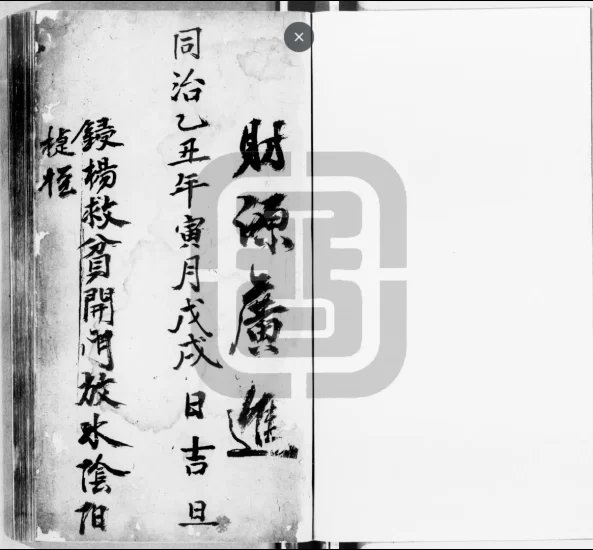 財源廣進
同治乙丑年寅月戊戌日吉旦
鋟楊救貧開門放水陰阳